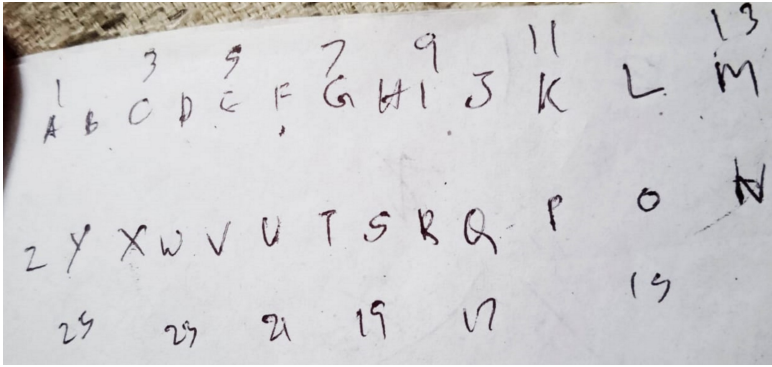 1 3 5 7 9 11 13
A B C D E F G H I J K L M
Z Y X W V U T S R Q P O N
25 23 21 19 17 15